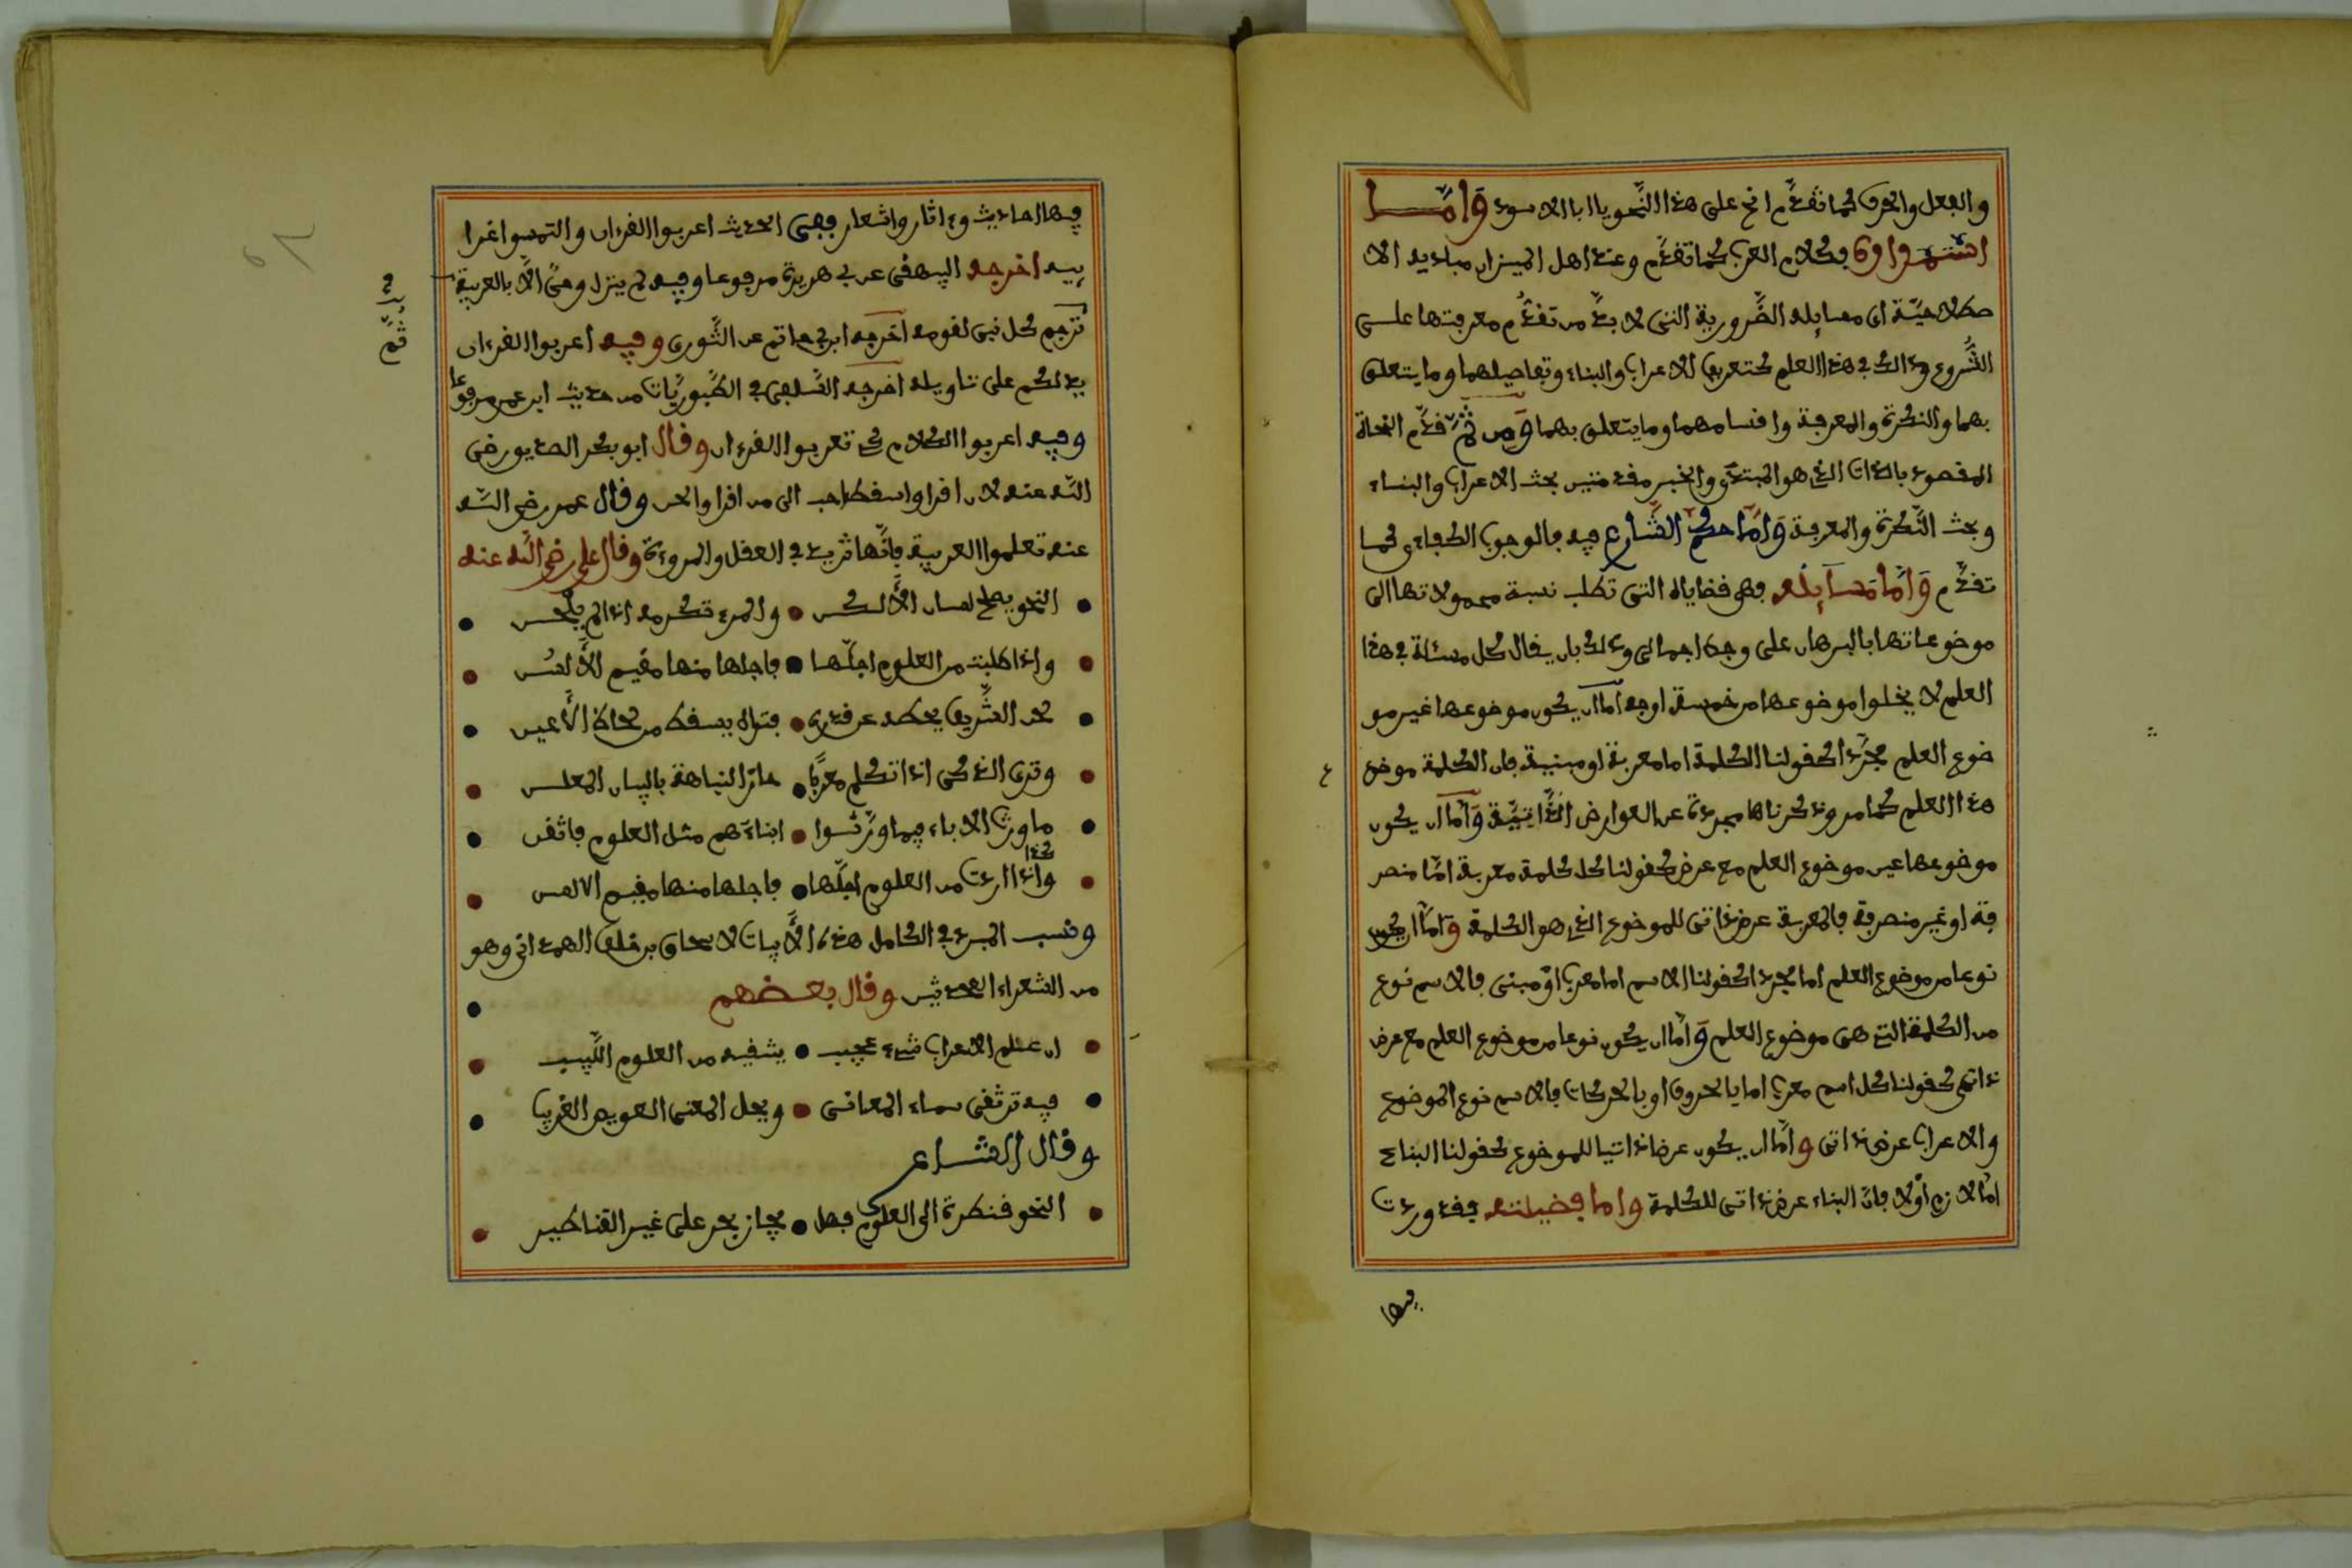 والفعل والحرف كما تقدم انح على هذا النَّحو يا ابا الاسود وَامَّــا
استمداده فكلام العرب كما تقدَّم وعند اهل الميزان مباديه الا
صطلاحيَّة اى مسايله الضَّرورية التى لا بدَّ من تقدُّم معرفتها على
الشُّروع وذالك في هذا العلم كتعريف الاعراب والبناء وتفاصيلهما وما يتعلق
بهما والنكرة والمعرفة واقسامهما وما يتعلق بهما وَمن ثمَّ قدَّم النحاة
المقصود بالذات الذي هو المبتدأ والخبر مقدمتين بحث الاعراب والبناء
وبحث النَّكرة والمعرفة وَامَّا حكم الشَّارع فيه فالوجوب الكفاءى كما
تقدَّم وَامَّا مَسَآئِلُه فهى قضاياه التى تطلب نسبة محمولاتها الى
موضوعاتها بالبرهان على وجه اجمالى وذلك بان يقال كل مسئلة في هذا
العلم لا يخلوا موضوعها من خمسة اوجه اما ان يكون موضوعها غير مو
ضوع العلم مجرَّدا كقولنا الكلمة اما معربة او مبنية فان الكلمة موضع
هذا العلم كما مر وذكرناها مجردة عن العوارض الذَّاتيَّة وَامَّا ان يكون
موضوعها عين موضوع العلم مع عرض كقولنا كل كلمة معربة امَّا منصر
فة او غير منصرفة فالمعربة عرض ذاتى للموضوع الذي هو الكلمة وَامَّا ان يكون
نوعا من موضوع العلم اما مجردا كقولنا الاسم اما معرب اوْ مبنى فالاسم نوع
من الكلمة التي هى موضوع العلم وَامَّا ان يكون نوعا من موضوع العلم مع عرض
ذاتى كقولنا كل اسم معرب اما بالحروف او بالحركات فالاسم نوع الموضوع
والاعراب عرض ذاتى وامَّا ان يكون عرضا ذاتيا للموضوع كقولنا البناء
امَّا لازم اوْلا فانَّ البناء عرض ذاتى للكلمة واما فضيلته فقد وردت
فيها
فيها احاديث وءاثار واشعار ففى الحديث اعربوا القرءان والتمسوا غرا
يبه اخرجه البيهقى عن بي هريرة مرفوعا وفيه لم ينزل وحىٌ الاَّ بالعربية
ثمَّ
ترجم كل نبى لقومه اخرجه ابن بي حاتم عن الثَّورى وفيه اعربوا القرءان
يدلكم على تاويله اخرجه السَّلفى في الطُّيوريَّات من حديث ابن عمر مرفوعا
وفيه اعربوا الكلام كى تعربوا القرءان وقال ابو بكر الصديق رضى
الله عنه لان اقرا واسقط احب الى من اقرا والحن وقال عمر رضى الله
عنه تعلموا العربية فانَّها تزيد في العقل والمروءة وقال على رضى الله عنه
• النحو يصلح لسان الاَلكن • والمرء تكرمه اذا لم يلْحن •
• واذا طلبت من العلوم اجلَّها • فاجلها منها مقيم الاَلسُن •
• لحن الشَّريف يحطه عن قدره • فتراه يسقط من لحاظ الاَعين •
• وترى الدنى اذا تكلم معربًا • حاز النباهة باللسان المعلن •
• ما ورث الاباء فيما ورَّثوا • ابناءَهم مثل العلوم فاتقن •
كذا
• واذا اردت من العلوم اجلَّها • فاجلها منها مقيم الالسن •
ونسب المبرد في الكامل هذه الاَبيات لاسحاق بن خلف الهمداني وهو
من الشعراء المحدثين وقال بعـضهم •
• ان علم الاعراب شىء عجيب • يشفيه من العلوم اللَّبيب •
• فيه ترتقى سماء المعانى • ويحل المعنى العويص الغريبا •
وقال الشـاعر
• النحو قنطرة الى العلوم فهل • يجاز بحر على غير القناطير •